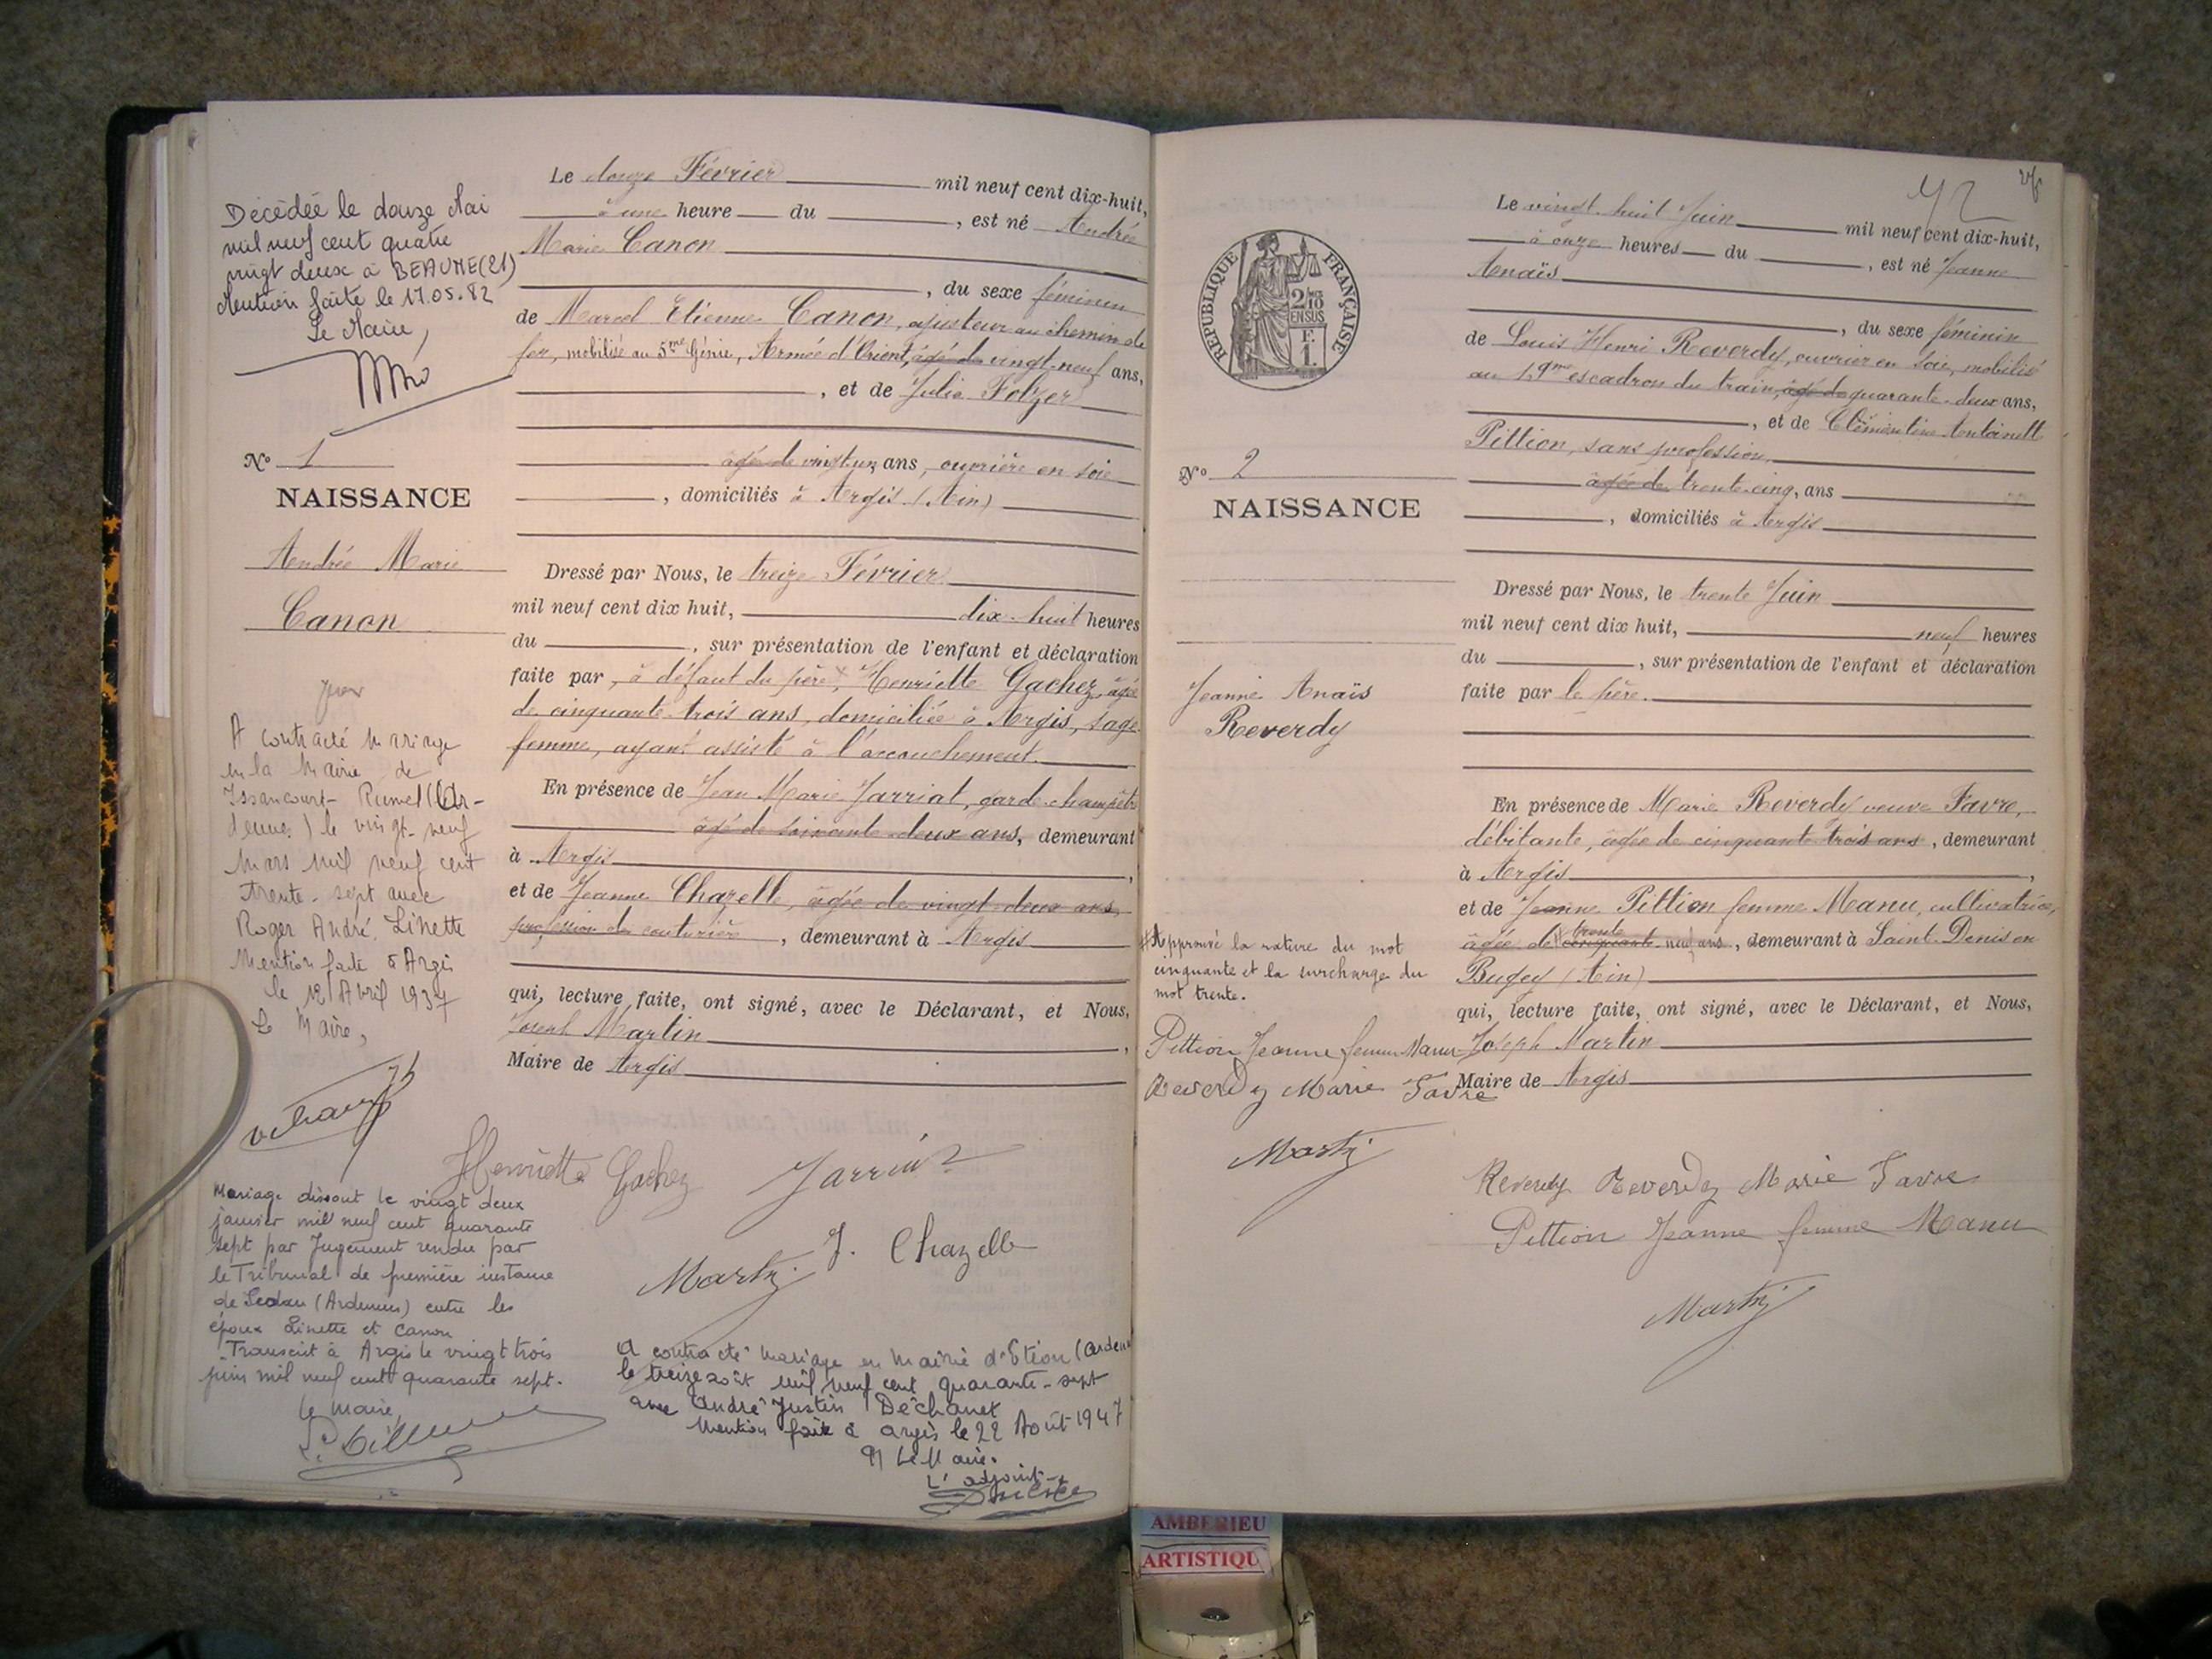 Le douze Février mil neuf cent dix-huit,
à une heure du , est né Andrée
Marie Canon
, du sexe féminin
de Marcel Etienne Canon, ajusteur au chemin de
fer, mobilisé au 5me Génie, Armée d'Orient, âgé de vingt-neuf ans,
, et de Julie Folzer
âgée de vingt un ans, ouvrière en soie
, domiciliés à Argis (Ain)
Dressé par Nous, le treize Février
mil neuf cent dix huit, dix-huit heures
du , sur présentation de l'enfant et déclaration
faite par, à défaut du père, Henriette Gachez, âgée
de cinquante-trois ans, domiciliée à Argis, sage-
femme, ayant assisté à l'accouchement.
En présence de Jean Marie Jarriat, garde-champêtre
âgé de soixante-deux ans, demeurant
à Argis ,
et de Jeanne Chazelle, âgée de vingt-deux ans,
profession de couturière , demeurant à Argis
qui, lecture faite, ont signé, avec le Déclarant, et Nous,
Joseph Martin ,
Maire de Argis
Henriette Gachez
J. Chazelle
Martin
Décédée le douze Mai
mil neuf cent quatre
vingt deux à BEAUNE (21)
Mention faite le 17.05.82
Le Maire,
N° 1
NAISSANCE
Andrée Marie
Canon
A contracté mariage
en la Mairie de
Issancourt-Rumel (Ar-
dennes) le vingt-neuf
Mars mil neuf cent
trente-sept avec
Roger André Linette
Mention faite à Argis
le 12 Avril 1937
Le Maire,
Mariage dissout le vingt deux
janvier mil neuf cent quarante
sept par Jugement rendu par
le Tribunal de première instance
de Sedan (Ardennes) entre les
époux Linette et Canon
Transcrit à Argis le vingt trois
juin mil neuf cent quarante sept.
Le Maire,
A contracté mariage en Mairie d'Etion (Arden
le treize août mil neuf cent quarante-sept
avec André Justin Déchanet
Mention faite à Argis le 22 Août 1947
Le Maire.
L'adjoint
42
Le vingt-huit Juin mil neuf cent dix-huit,
à onze heures du , est né Jeanne
Anaïs
, du sexe féminin
de Louis Henri Reverdy, ouvrier en soie, mobilisé
au escadron du train, âgé de quarante-deux ans,
, et de Clémentine Antoinette
Pittion, sans profession
âgée de trente-cinq, ans
, domiciliés à Argis
Dressé par Nous, le trente Juin
mil neuf cent dix huit, neuf heures
du , sur présentation de l'enfant et déclaration
faite par le père.
En présence de Marie Reverdy veuve Favre,
débitante, âgée de cinquante-trois ans, demeurant
à Argis ,
et de Jeanne Pittion femme Manu, cultivatrice,
trente
âgée de cinquante-neuf ans, demeurant à Saint-Denis en
Bugey (Ain)
qui, lecture faite, ont signé, avec le Déclarant, et Nous,
Joseph Martin
Maire de Argis
REPUBLIQUE FRANÇAISE
2/10
EN SUS
F.
1.
N° 2
NAISSANCE
Jeanne Anaïs
Reverdy
Approuvé la rature du mot
cinquante et la surcharge du
mot trente.
Pittion Jeanne femme Manu
Reverdy Marie Favre
Martin
Reverdy Reverdy Marie Favre
Pittion Jeanne femme Manu
Martin
AMBERIEU
ARTISTIQU